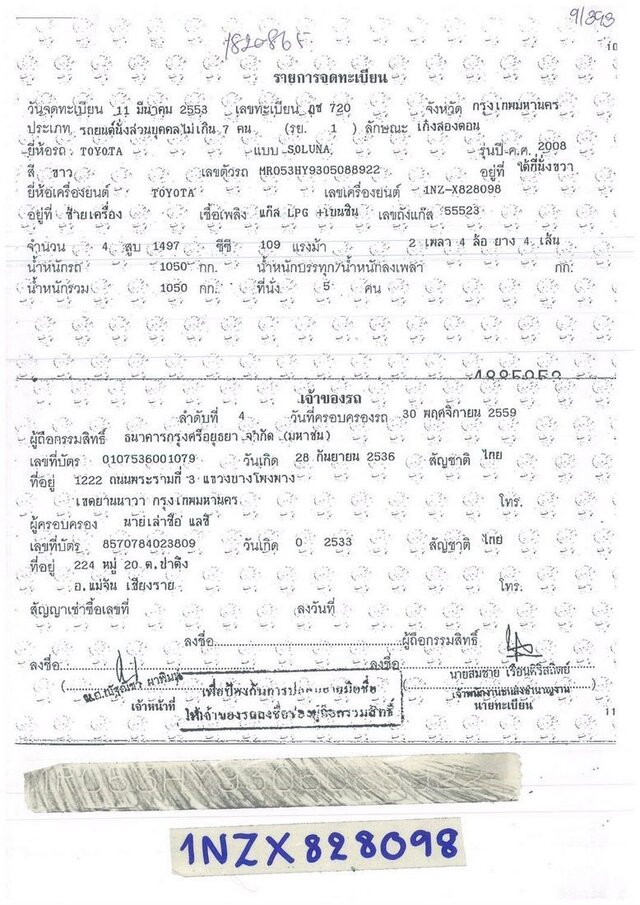 9/393
1820865
10
รายการจดทะเบียน
วันจดทะเบียน 11 มีนาคม 2553 เลขทะเบียน ฎช 720 จังหวัด กรุงเทพมหานคร
ประเภท รถยนต์นั่งส่วนบุคคลไม่เกิน 7 คน (รย. 1 ) ลักษณะ เก๋งสองตอน
ยี่ห้อรถ TOYOTA แบบ SOLUNA รุ่นปี ค.ศ. 2008
สี ขาว เลขตัวรถ MR053HY9305088922 อยู่ที่ ใต้ที่นั่งขวา
ยี่ห้อเครื่องยนต์ TOYOTA เลขเครื่องยนต์ 1NZ-X828098
อยู่ที่ ซ้ายเครื่อง เชื้อเพลิง แก๊ส LPG +เบนซิน เลขถังแก๊ส 55523
จำนวน 4 สูบ 1497 ซีซี 109 แรงม้า 2 เพลา 4 ล้อ ยาง 4 เส้น
น้ำหนักรถ 1050 กก. น้ำหนักบรรทุก/น้ำหนักลงเพลา กก.
น้ำหนักรวม 1050 กก. ที่นั่ง 5 คน
เจ้าของรถ
ลำดับที่ 4 วันที่ครอบครองรถ 30 พฤศจิกายน 2559
ผู้ถือกรรมสิทธิ์ ธนาคารกรุงศรีอยุธยา จำกัด (มหาชน)
เลขที่บัตร 0107536001079 วันเกิด 28 กันยายน 2536 สัญชาติ ไทย
ที่อยู่ 1222 ถนนพระรามที่ 3 แขวงบางโพงพาง
เขตยานนาวา กรุงเทพมหานคร โทร.
ผู้ครอบครอง นายเล่าซือ แลชี
เลขที่บัตร 8570784023809 วันเกิด 0 2533 สัญชาติ ไทย
ที่อยู่ 224 หมู่ 20 ต.ป่าตึง
อ.แม่จัน เชียงราย โทร.
สัญญาเช่าซื้อเลขที่ ลงวันที่
ลงชื่อ ผู้ถือกรรมสิทธิ์
ลงชื่อ ลงชื่อ
นายสมชาย
เจ้าหน้าที่
นายทะเบียน
เพื่อป้องกันการปลอมลายมือชื่อ
ให้เจ้าของรถลงชื่อช่องผู้ถือกรรมสิทธิ์
11
1NZX828098